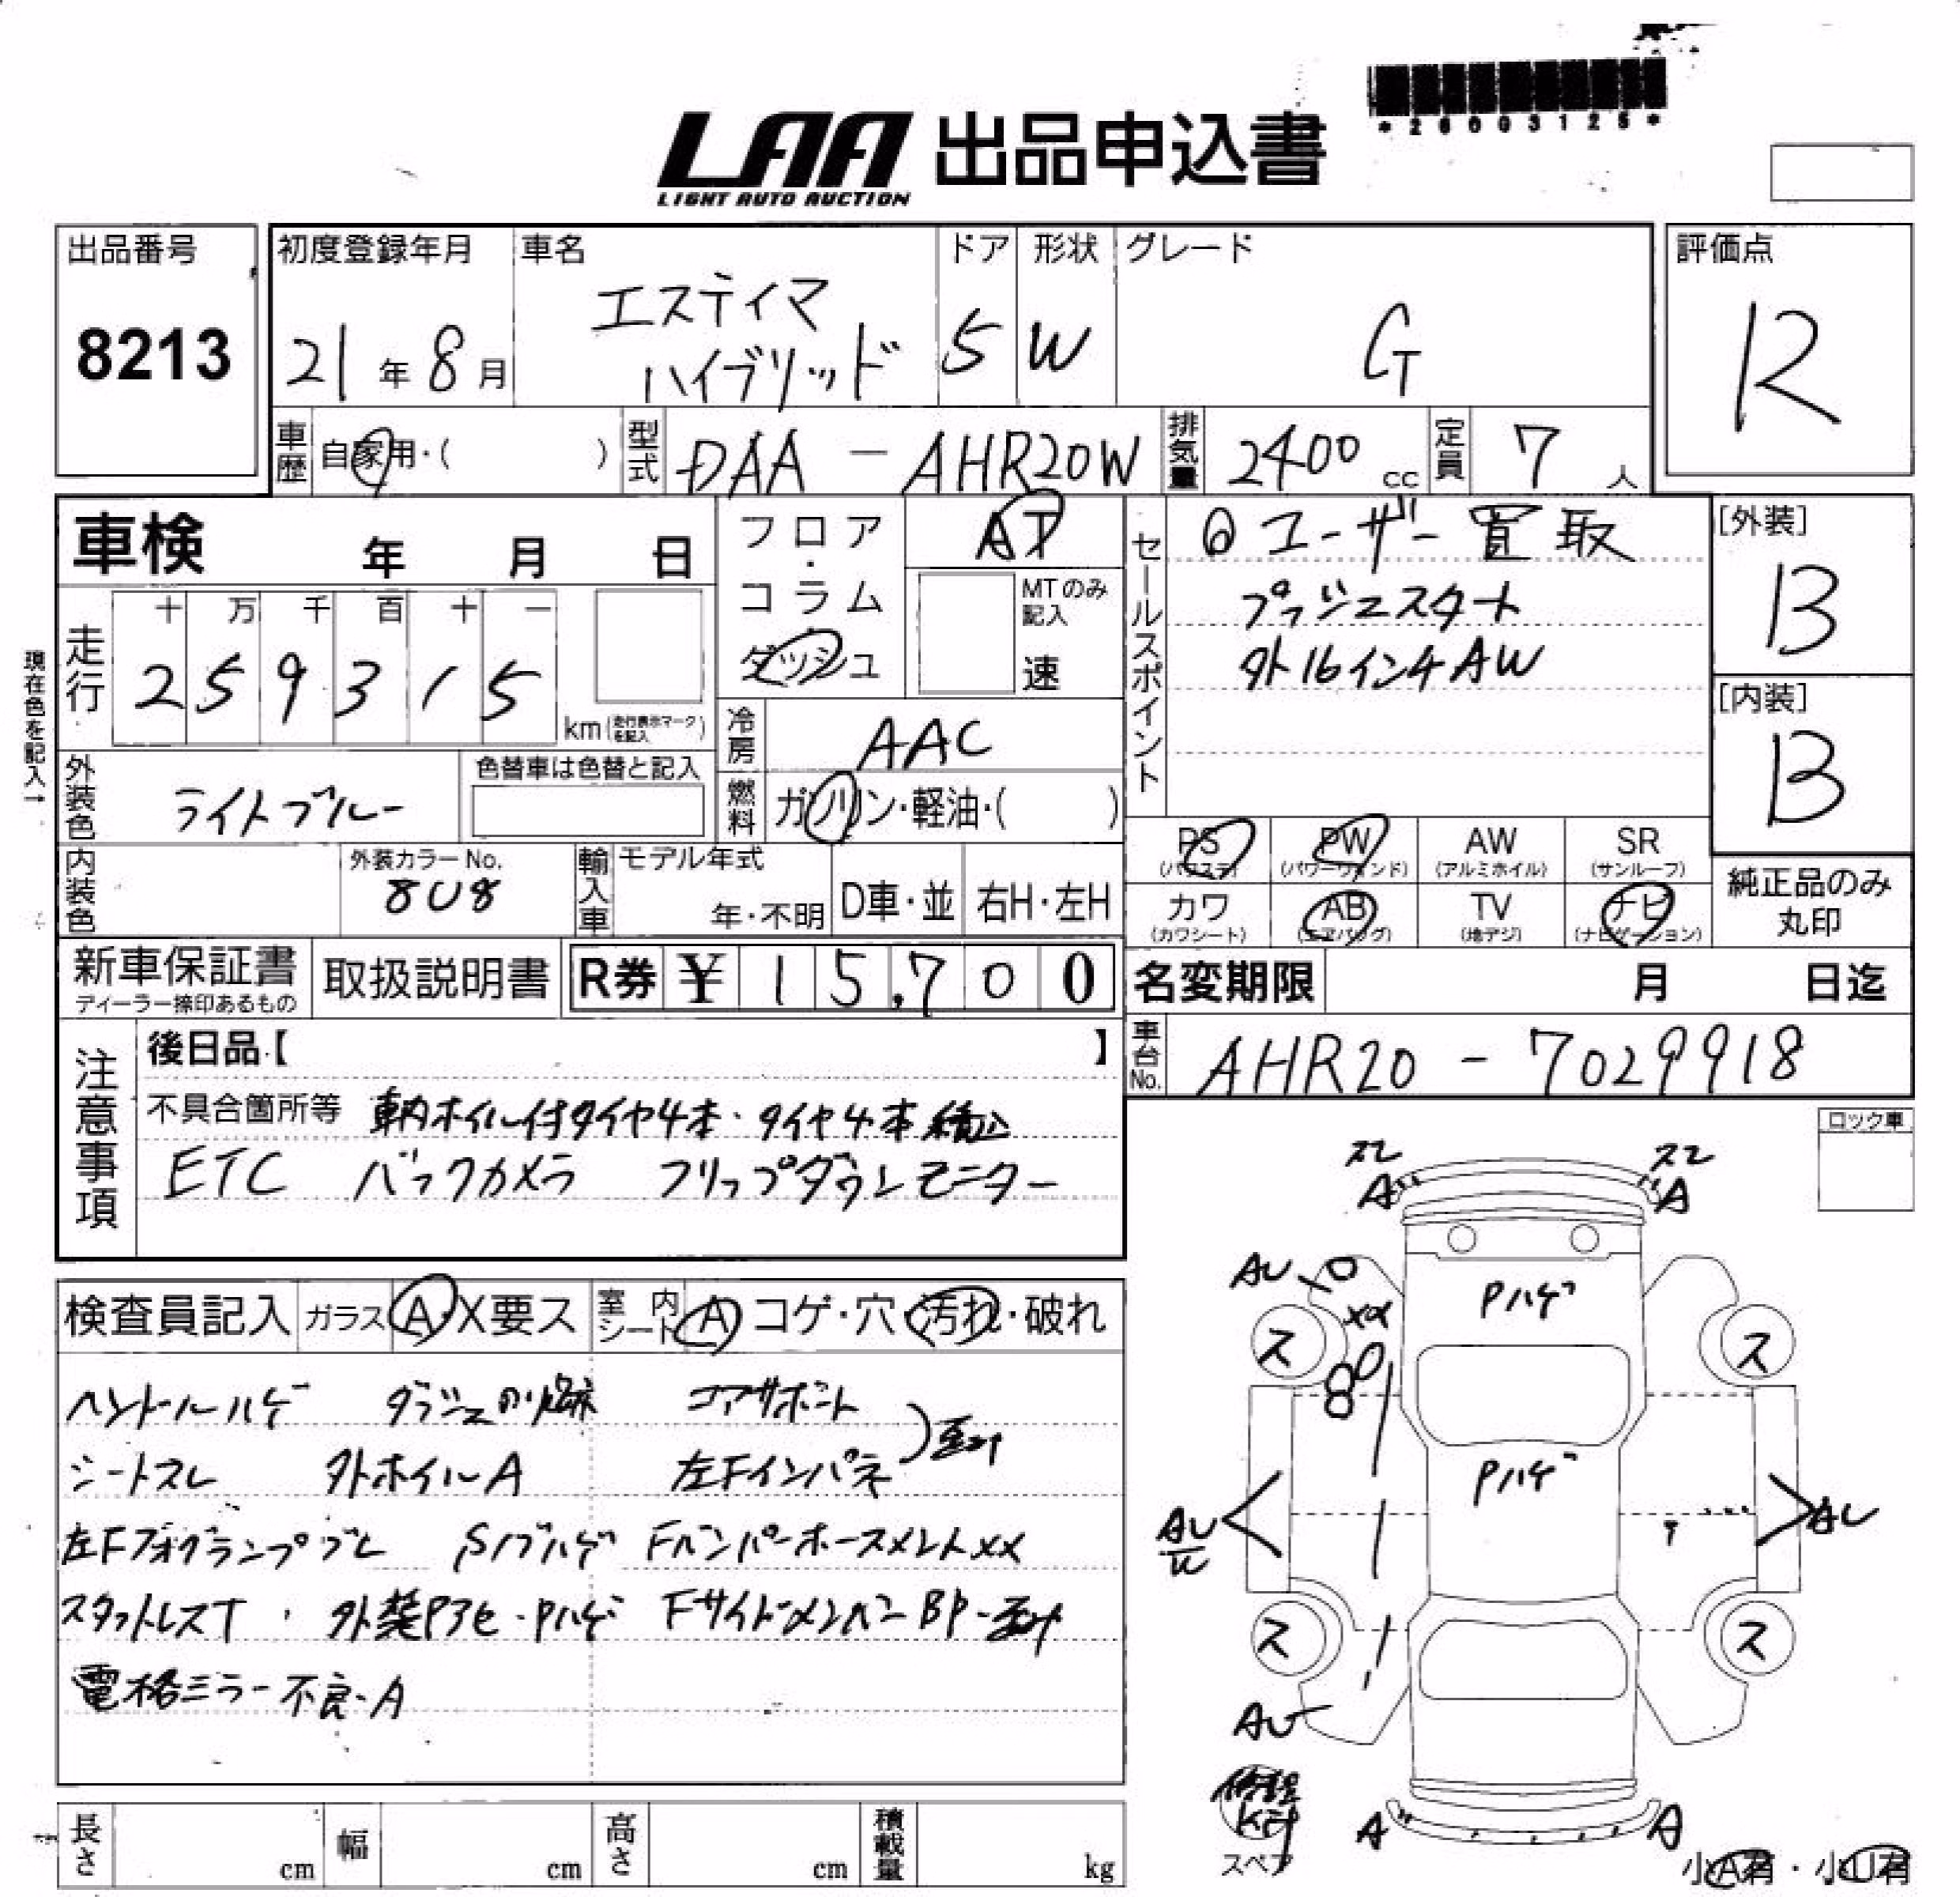 *26003125*
LAA 出品申込書
LIGHT AUTO AUCTION
出品番号 8213
初度登録年月 21年8月
車名 エスティマ
ハイブリッド
ドア 5
形状 W
グレード G
評価点 R
車歴 自家用・( )
型式 DAA-AHR20W
排気量 2400cc
定員 7人
車検 年 月 日
フロア・コラム ダッシュ
AT
MTのみ記入 速
セールスポイント
◎ユーザー買取
プッシュスタート
外16インチAW
[外装] B
[内装] B
現在色を記入→
走行 十 万 千 百 十 一
2 5 9 3 1 5
km(走行表示マークを記入)
冷房 AAC
燃料 ガソリン・軽油・( )
外装色 ライトブルー
色替車は色替と記入
内装色
外装カラーNo. 8U8
輸入車 モデル年式 年・不明 D車・並 右H・左H
PS (パワステ) PW (パワーウインド) AW (アルミホイル) SR (サンルーフ)
カワ (カワシート) AB (エアバッグ) TV (地デジ) ナビ (ナビゲーション)
純正品のみ丸印
新車保証書 ディーラー捺印あるもの
取扱説明書
R券 ¥15,700
名変期限 月 日迄
車台No. AHR20-7029918
注意事項
後日品【 】
不具合箇所等 車内ホイル付タイヤ4本・タイヤ4本積込
ETC バックカメラ フリップダウンモニター
ロック車
検査員記入 ガラス A・X要ス 室内シート A コゲ・穴・汚れ・破れ
ハンドルハゲ ダッシュのり跡 コアサポート
シートスレ 外ホイルA 左Fインパネ
左Fフォグランプブレ SノブハゲFバンパーホースメントXX
スタットレスT・外装Pアセ・Pハゲ FサイドメンバーBP
電格ミラー不良・A
スレ A スレ A
AU
XX
Pハゲ
ス ス
Pハゲ
AU W
AU
ス ス
AU
スペア
A A
小A有・小U有
長さ cm 幅 cm 高さ cm 積載量 kg